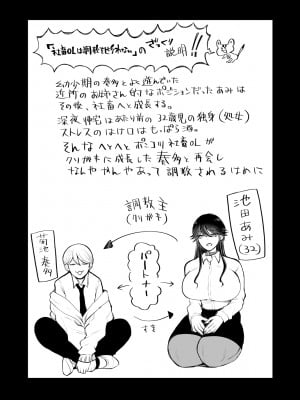 のざっくり説明!!
幼少期の泰多とよく遊んでいた
近所のお姉さん的なポジションだったあみは
その後、社畜へと成長する。
深夜帰宅はあたり前の32歳児の独身(処女)
ストレスのはけ口はもっぱら酒。
そんなへとへとポンコツ社畜OLが
クソガキに成長した泰多と再会し
なんやかんやあって調教されるはめに
調教主
(クソガキ)
池田あみ
(32)
菊池
泰多
パートナー
すき